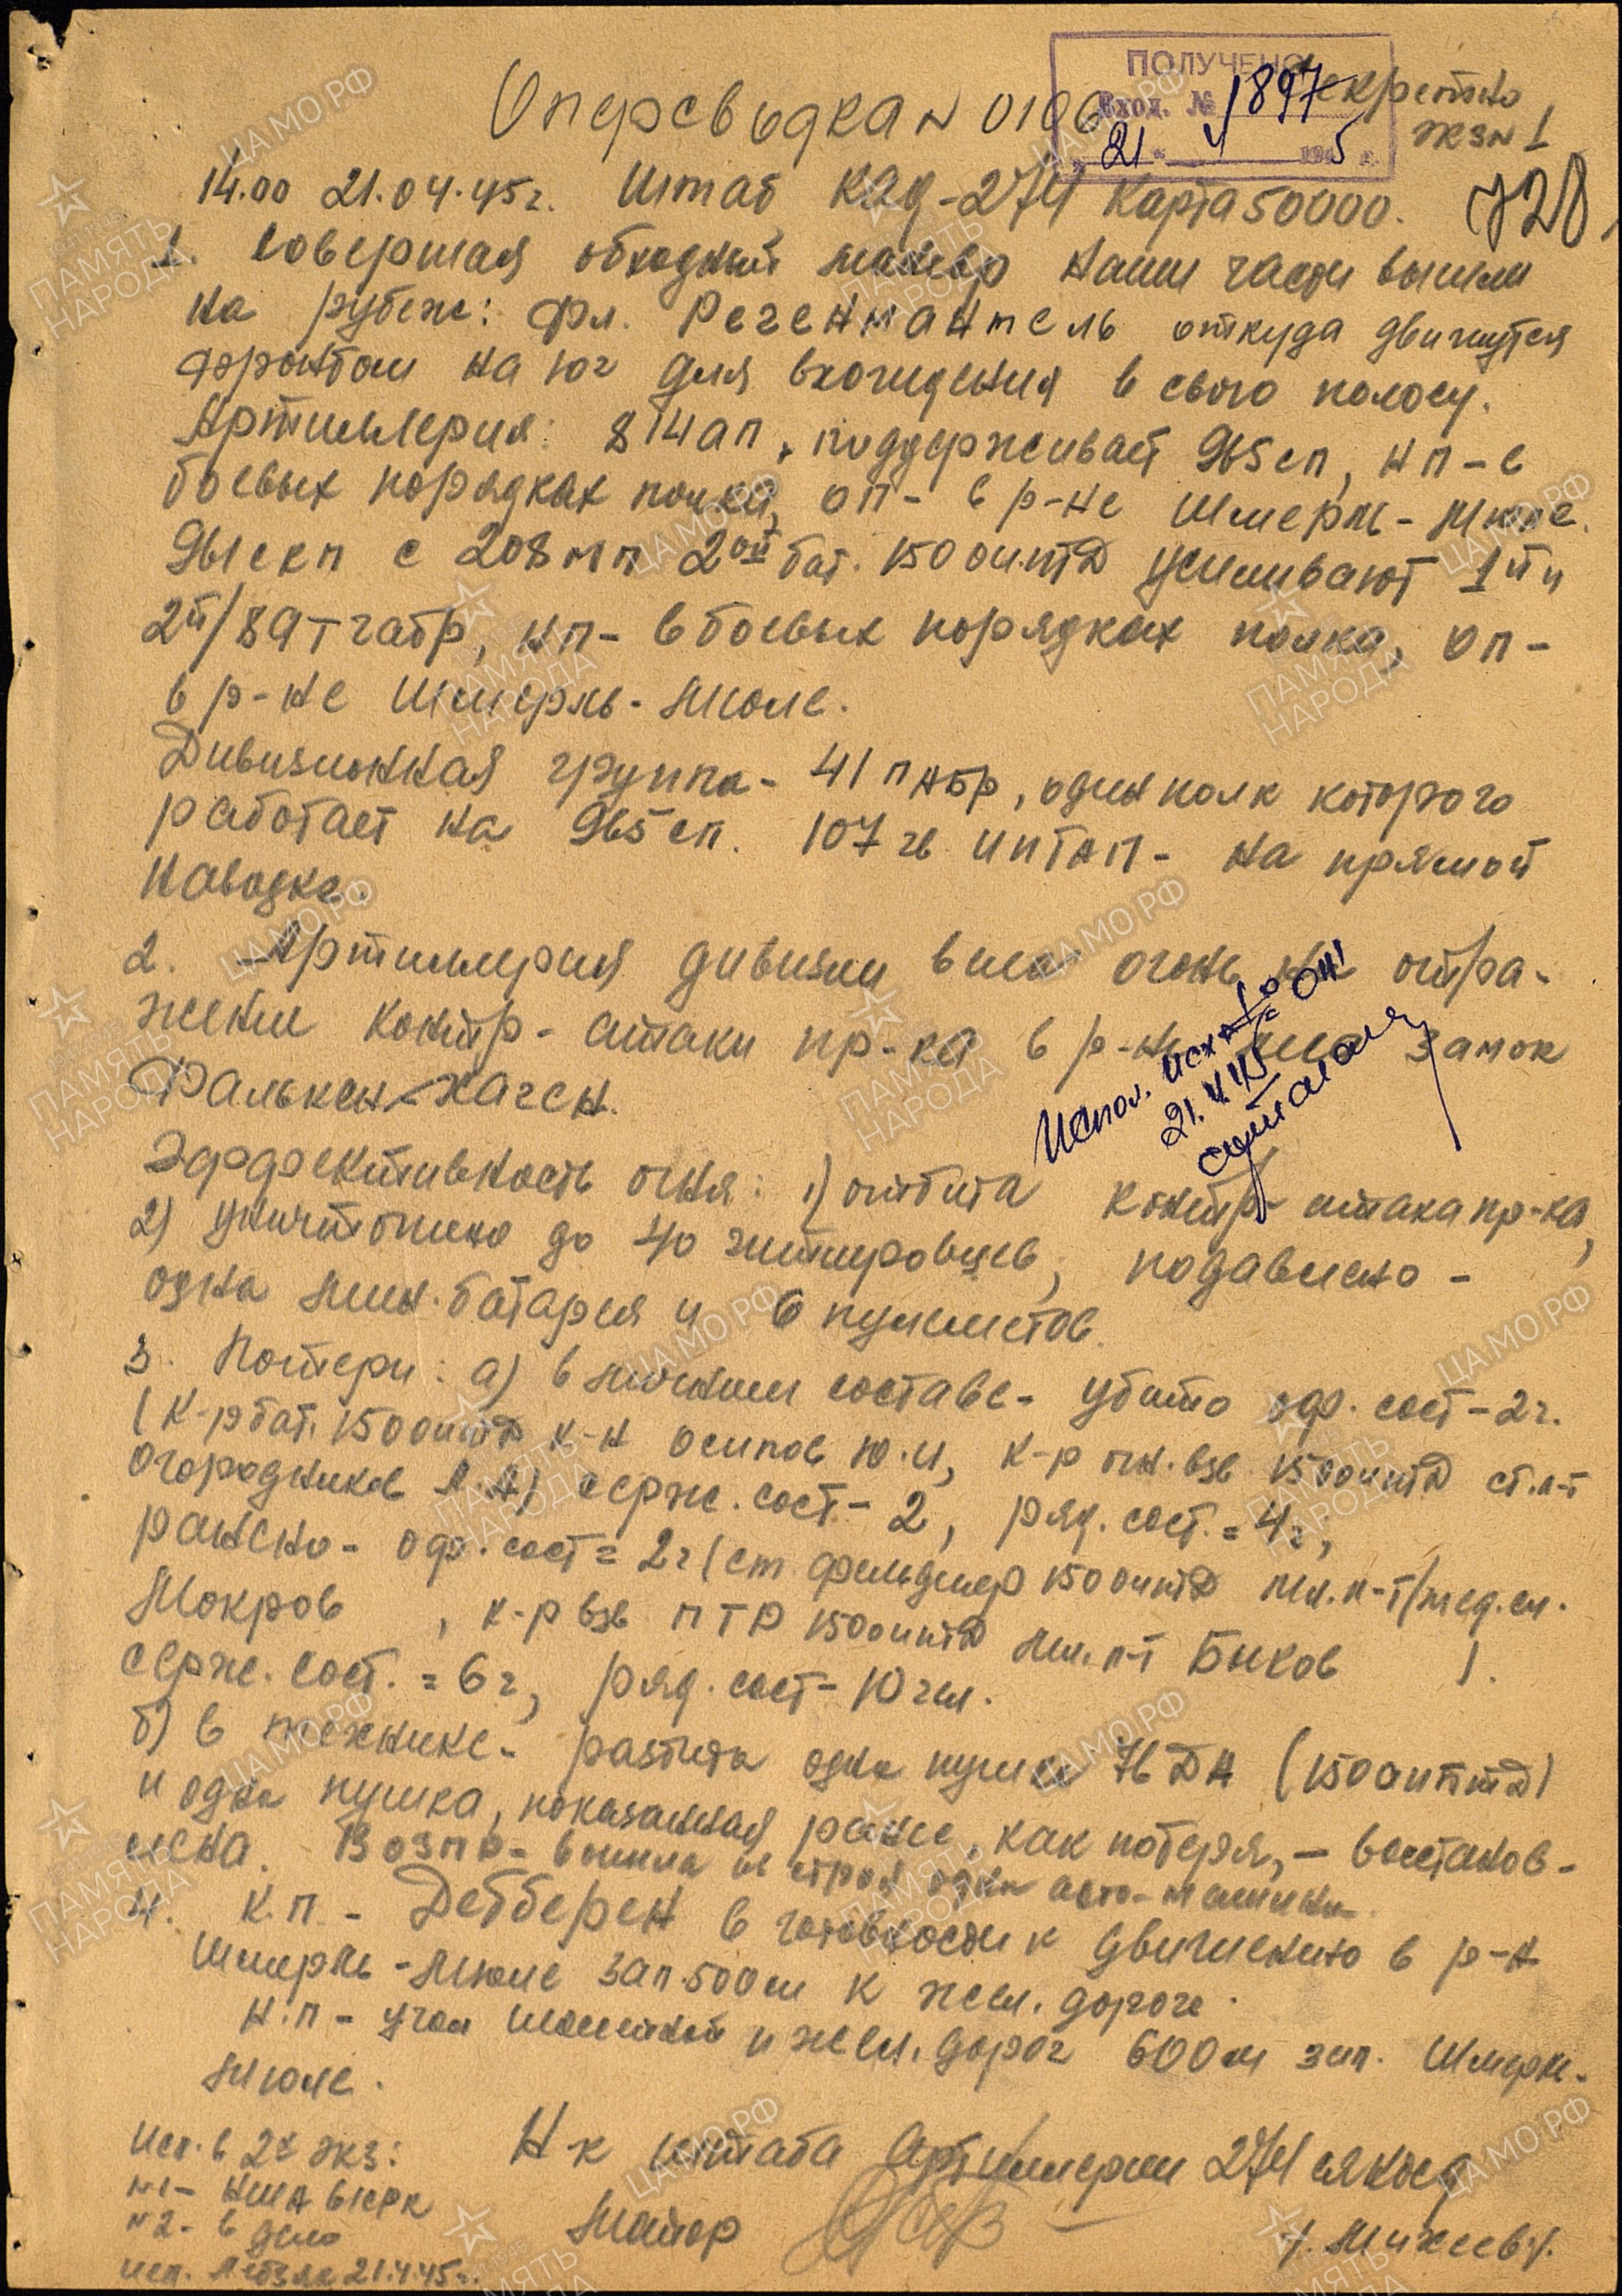 ПОЛУЧЕНО
Вход. № 1897
"21" 4 1945 г.
Секретно
экз N 1
728
Оперсводка N 0106
14.00 21.04.45г. Штаб КАД-274 Карта 50000.
1. Совершая обходный маневр наши части вышли
на рубеж: Фл. Регенмантель откуда движутся
фронтом на юг для вхождения в свою полосу.
Артиллерия: 814 ап, поддерживает 965 сп, НП - в
боевых порядках полка, ОП - в р-не Шмерль-Мюле.
961 скп с 208 мп 2ой бат. 150 оиптд усиливают 1й и
2й/89 тгабр, НП - в боевых порядках полка, ОП -
в р-не Шмерль-Мюле.
Дивизионная группа - 41 пабр, один полк которого
работает на 965 сп. 107 гв иптап - на прямой
наводке.
2. Артиллерия дивизии вела огонь на отра-
жении контр-атаки пр-ка в р-не замок
Фалькен-хаген.
Испол. исх
21.4.45
Эффективность огня: 1) отбита контр-атака пр-ка,
2) уничтожено до 40 гитлеровцев, подавлено -
одна мин. батарея и 6 пулеметов.
3. Потери: а) в личном составе - убито оф. сост - 2 ч.
(к-р бат. 150 оиптд к-н Осипов Ю.И, к-р огн. взв 150 оиптд ст. л-т
Огородников А.А) серж. сост. - 2, ряд. сост. = 4 ч,
ранено - оф. сост = 2 ч (ст фельдшер 150 оиптд мл. л-т/мед. сл.
Мокров , к-р взв ПТР 150 оиптд мл. л-т Быков ).
серж. сост. = 6 ч, ряд. сост - 10 чел.
б) в технике - разбита одна пушка 76 ДА (150 оиптд)
и одна пушка, показанная ранее, как потеря, - восстанов-
лена. В озпр - вышла из строя одна авто-машина.
4. К.П - Дебберен в готовности к движению в р-н
Шмерль-Мюле зап. 500м к жел. дороге.
Н.П - угол шоссейной и жел. дорог 600м зап. Шмерль-
Мюле.
Н-к штаба Артиллерии 274 сякьсд
Майор /. Михеев /.
Исп. в 2х экз:
N1 - НША 61 СКК
N2 - в дело
исп. 21.4.45г.
ЦАМО РФ
ПАМЯТЬ
НАРОДА